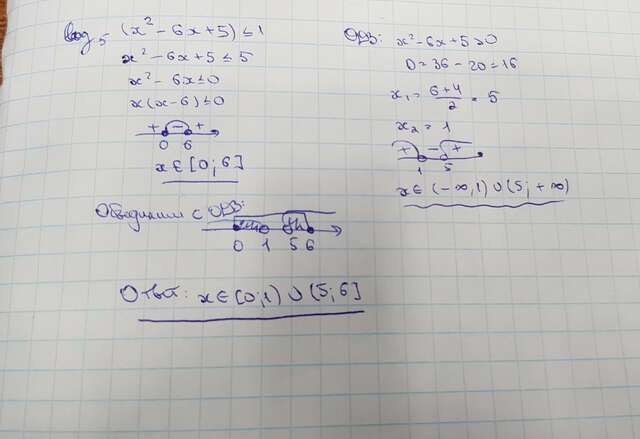 log₅ (x² - 6x + 5) ≤ 1
x² - 6x + 5 ≤ 5
x² - 6x ≤ 0
x(x - 6) ≤ 0
+ - +
0 6
x ∈ [0; 6]
ОДЗ: x² - 6x + 5 > 0
D = 36 - 20 = 16
x₁ = (6+4)/2 = 5
x₂ = 1
+ - +
1 5
x ∈ (-∞, 1) ∪ (5; +∞)
с ОДЗ:
0 1 5 6
Ответ: x ∈ [0; 1) ∪ (5; 6]